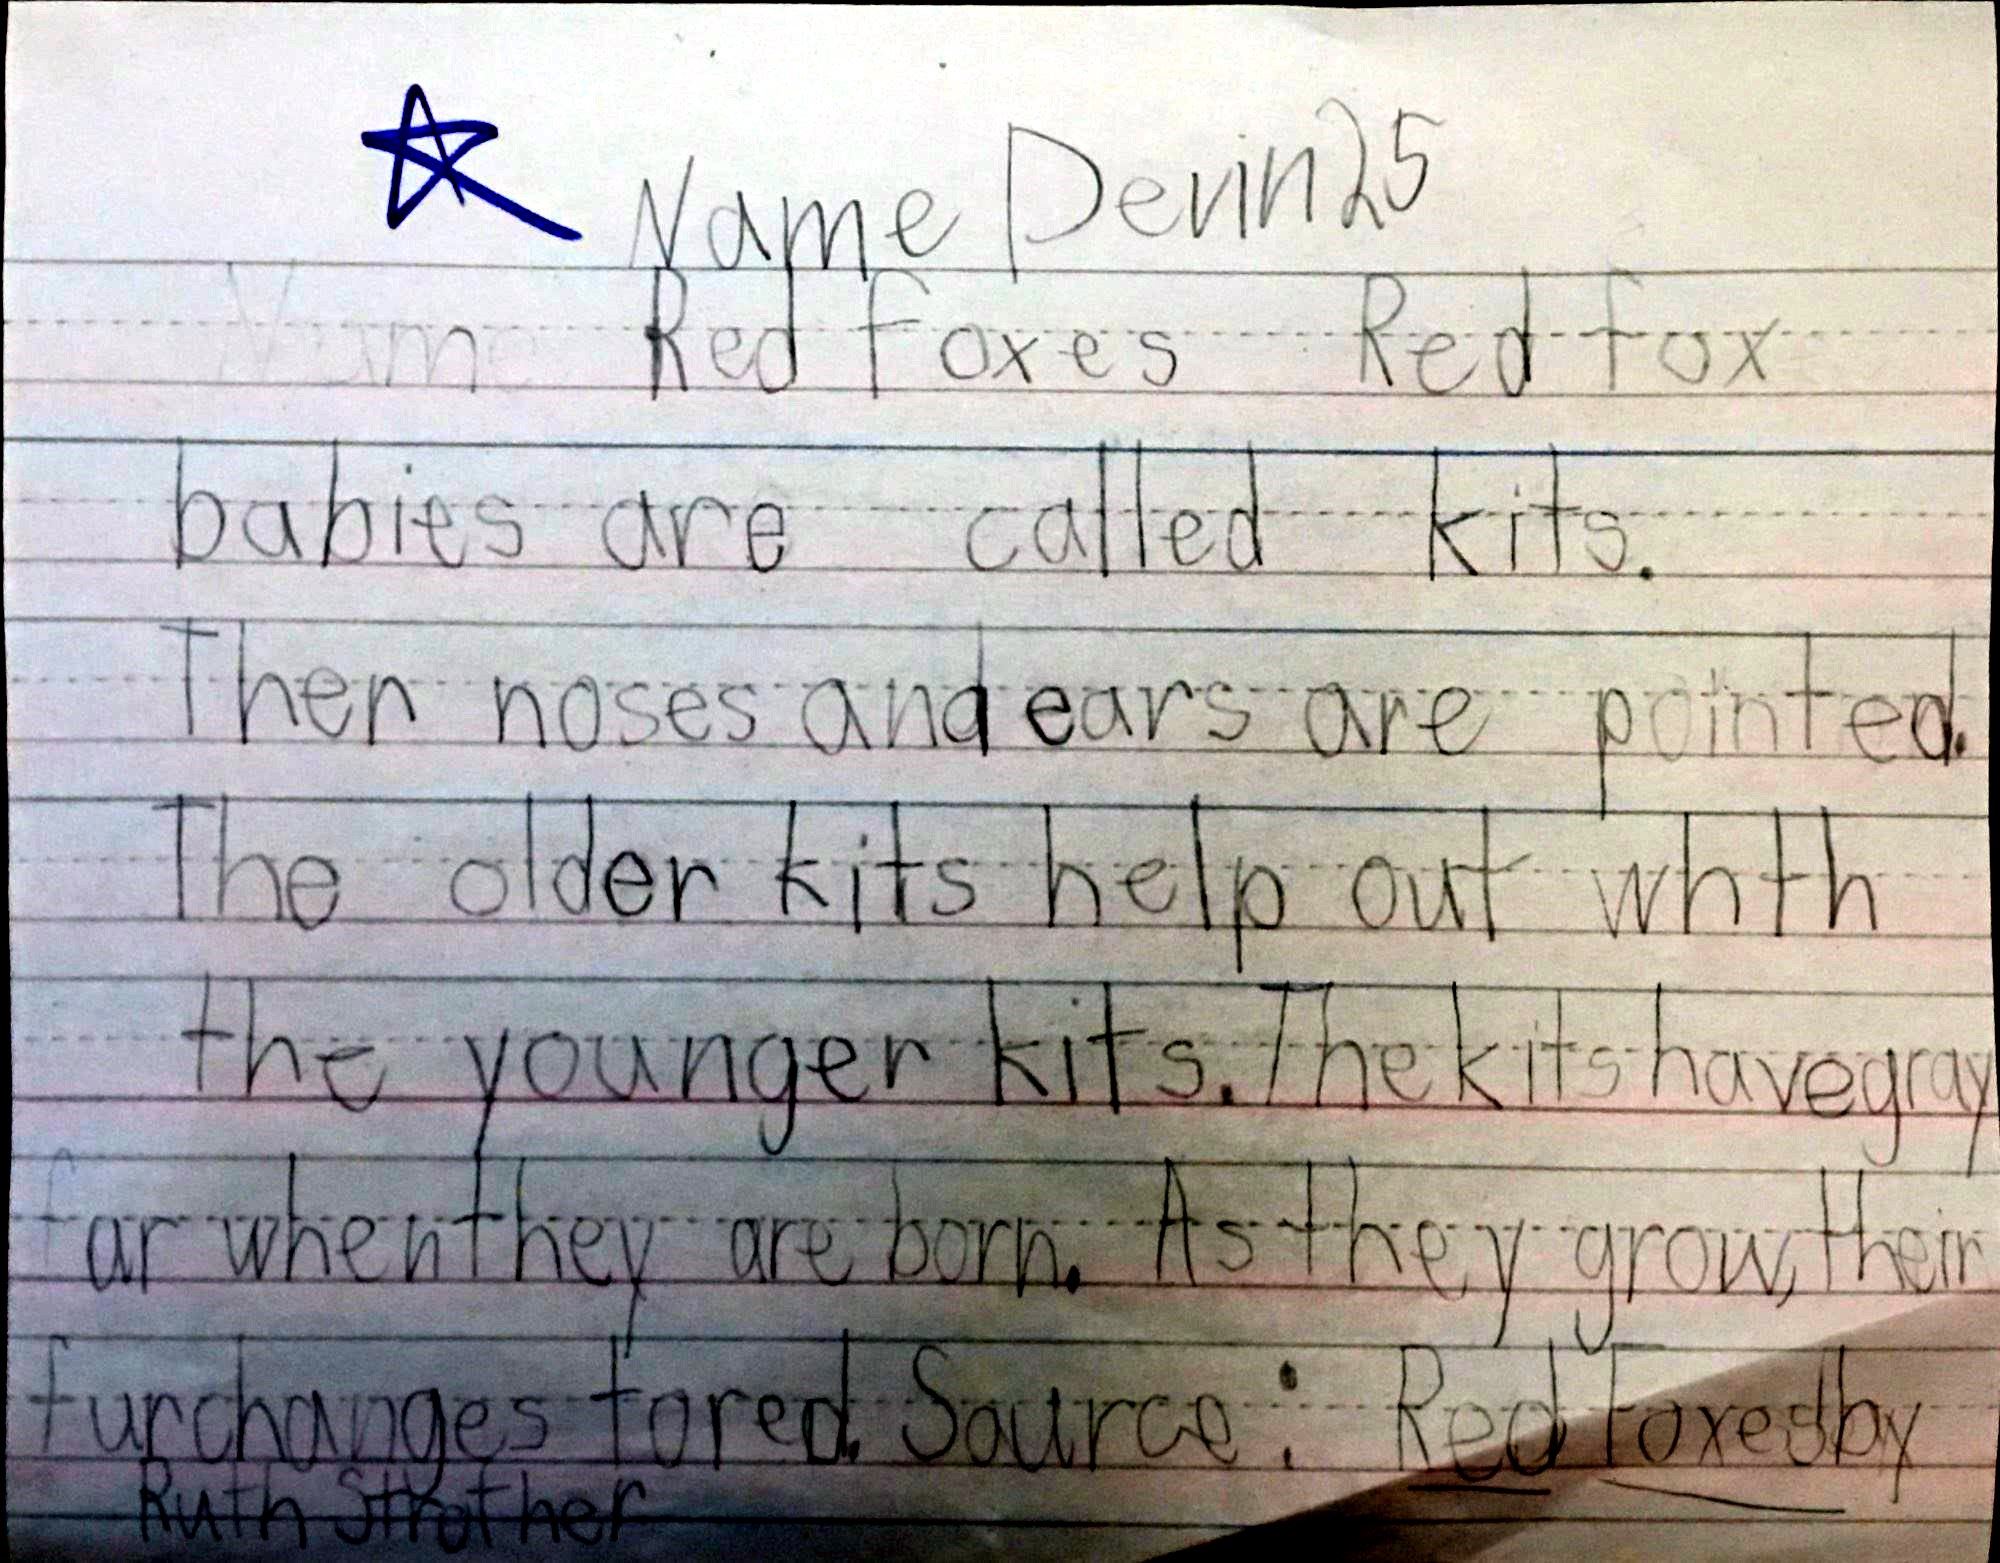 Name Devin 25
Name Red Foxes Red fox
babies are called kits.
Ther noses and ears are pointed.
The older kits help out whth
the younger kits. The kits have gray
far when they are born. As they grow, their
fur changes to red. Source: Red Foxes by
Ruth Strother